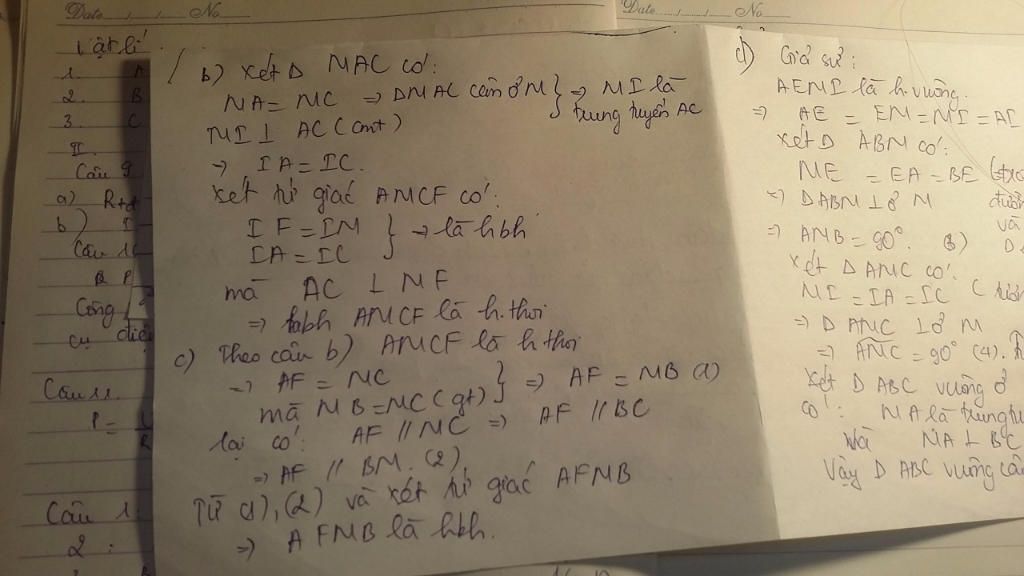 Date / / No
Date / / No
Vật lí
1. A
2. B
3. C
II.
Câu 9
a)
b) I
Công
cụ điện
Câu 11.
P =
Câu 1.
2 :
b) Xét Δ MAC có:
MA = MC → ΔMAC cân ở M } → MI là
trung tuyến AC
MI ⊥ AC (cmt)
→ IA = IC.
Xét tứ giác AMCF có:
IF = IM } → là hbh
IA = IC
mà AC ⊥ MF
=> hbh AMCF là h.thoi
c) Theo câu b) AMCF là h.thoi
=> AF = MC } => AF = MB (1)
mà MB = MC (gt)
lại có: AF // MC => AF // BC
=> AF // BM. (2)
Từ (1), (2) và xét tứ giác AFMB
=> AFMB là hbh.
d) Giả sử:
AEMI là h.vuông.
=> AE = EM = MI = AI
Xét Δ ABM có:
ME = EA = BE
=> ΔABM ⊥ ở M
=> AMB = 90°.
Xét Δ AMC có:
MI = IA = IC
=> Δ AMC ⊥ ở M
=> AMC = 90° (4).
Xét Δ ABC vuông ở
có: MA là trung
và MA ⊥ BC
Vậy Δ ABC vuông cân